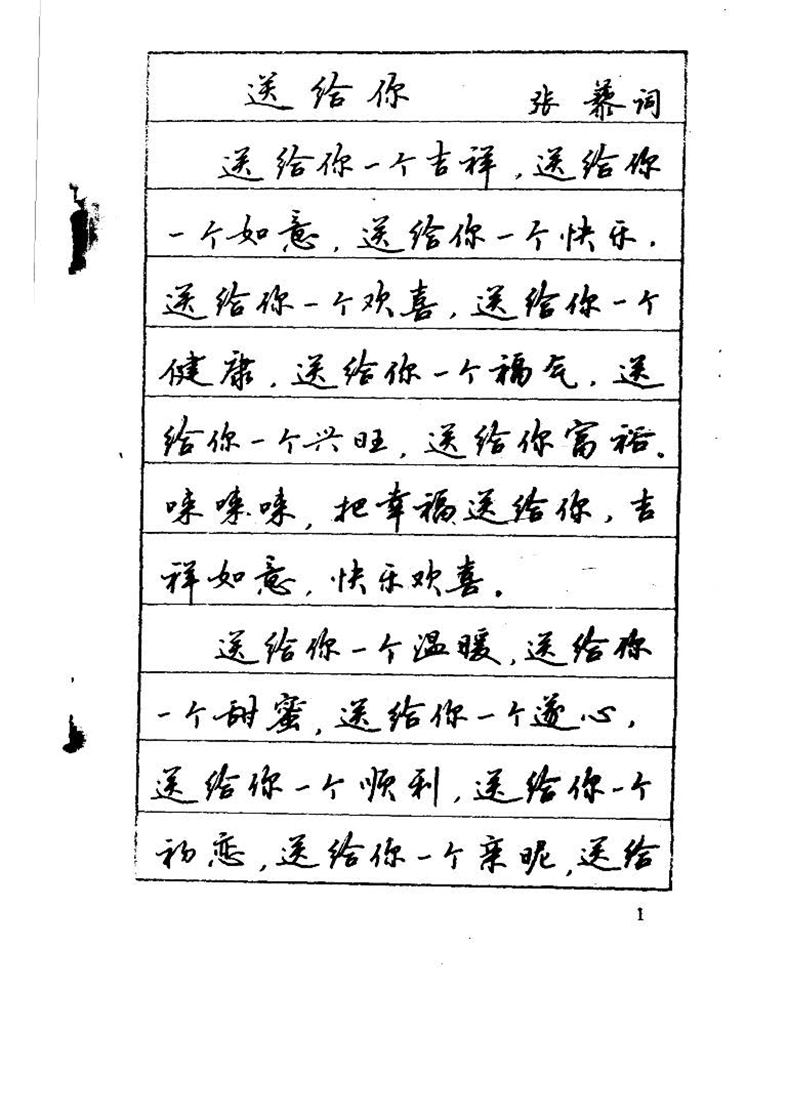 送给你 张藜词
送给你一个吉祥,送给你
一个如意,送给你一个快乐,
送给你一个欢喜,送给你一个
健康,送给你一个福气,送
给你一个兴旺,送给你富裕。
唻唻唻,把幸福送给你,吉
祥如意,快乐欢喜。
送给你一个温暖,送给你
一个甜蜜,送给你一个遂心,
送给你一个顺利,送给你一个
初恋,送给你一个亲昵,送给
1